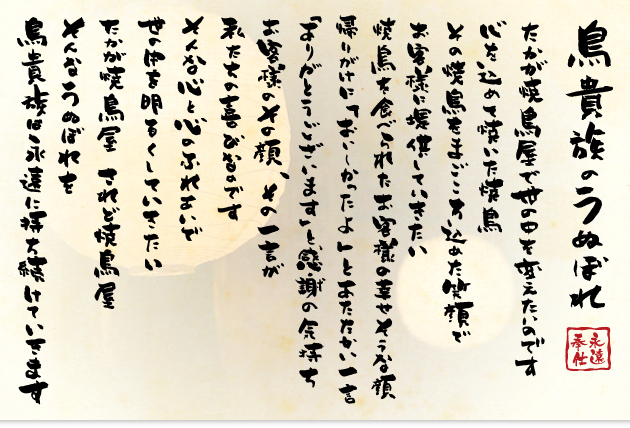 鳥貴族のうぬぼれ
永遠奉仕
たかが焼鳥屋で世の中を変えたいのです
心を込めて焼いた焼鳥
その焼鳥をまごころ込めた笑顔で
お客様に提供していきたい
焼鳥を食べられたお客様の幸せそうな顔
帰りがけに「おいしかったよ」とあたたかい一言
「ありがとうございます」と感謝の気持ち
お客様のその顔、その一言が
私たちの喜びなのです
そんな心と心のふれあいで
世の中を明るくしていきたい
たかが焼鳥屋 されど焼鳥屋
そんなうぬぼれを
鳥貴族は永遠に持ち続けていきます